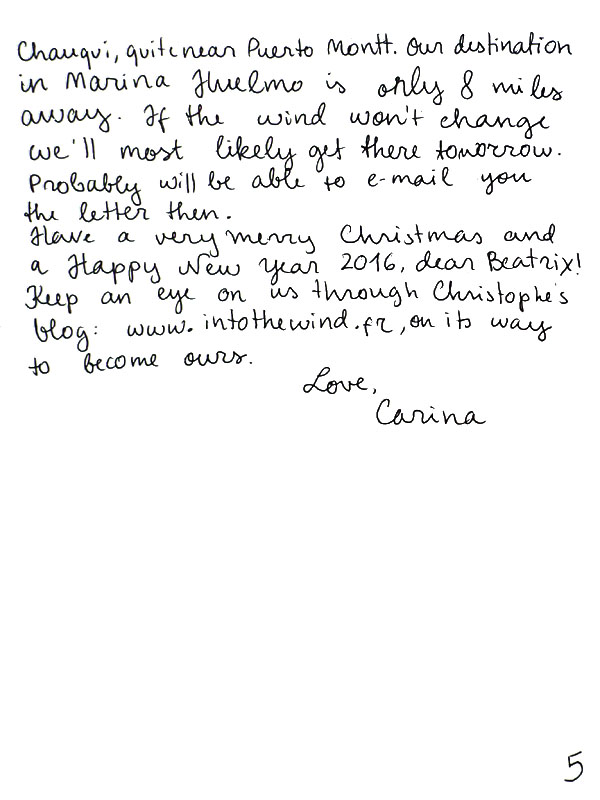 Chauqui, quite near Puerto Montt. Our destination
in Marina Huelmo is only 8 miles
away. If the wind won't change
we'll most likely get there tomorrow.
Probably will be able to e-mail you
the letter then.
Have a very merry Christmas and
a Happy New Year 2016, dear Beatrix!
Keep an eye on us through Christophe's
blog: www.intothewind.fr, on its way
to become ours.
Love,
Carina
5